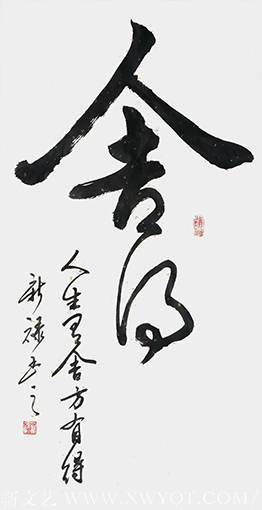 舍得
人生有舍方有得
新禄书之
新文艺 WWW.XWYQT.COM